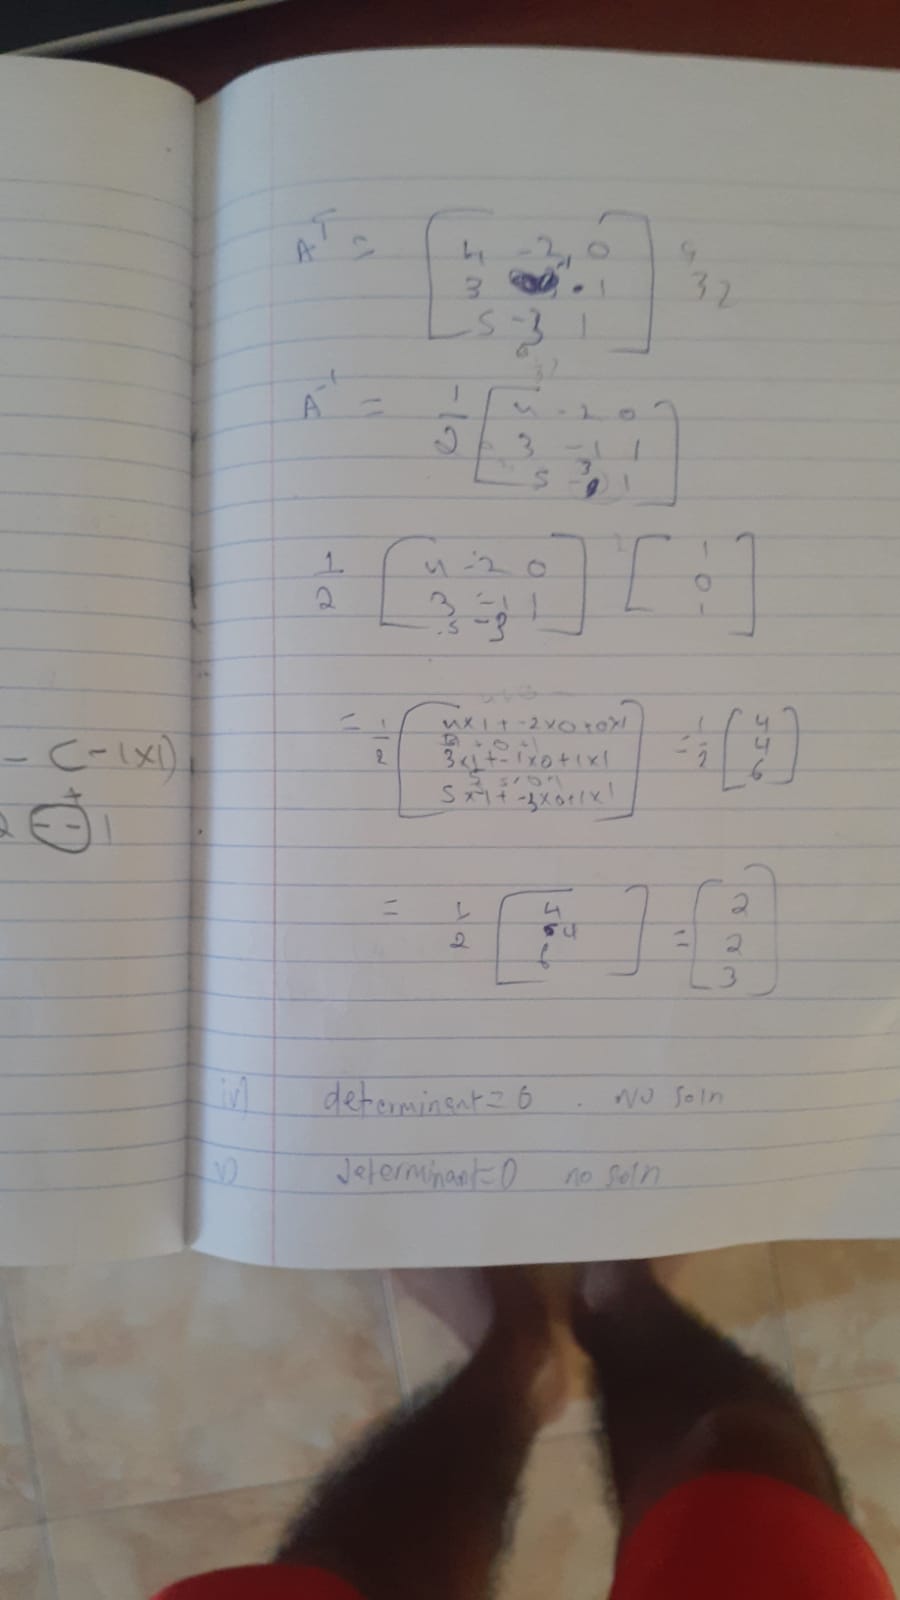 A^T = [ 4 -2 0
3 -1 1
5 -3 1 ]
4
3 2
A^-1 = 1/2 [ 4 -2 0
3 -1 1
5 -3 1 ]
1/2 [ 4 -2 0
3 -1 1
5 -3 ] [ 1
0
1 ]
= 1/2 [ 4x1 + -2x0 + 0x1
3x1 + -1x0 + 1x1
5x1 + -3x0 + 1x1 ] = 1/2 [ 4
4
6 ]
= 1/2 [ 4
4
6 ] = [ 2
2
3 ]
iv) determinant = 0 . No soln
v) determinant = 0 no soln
- (-1x1)
+
-- 1